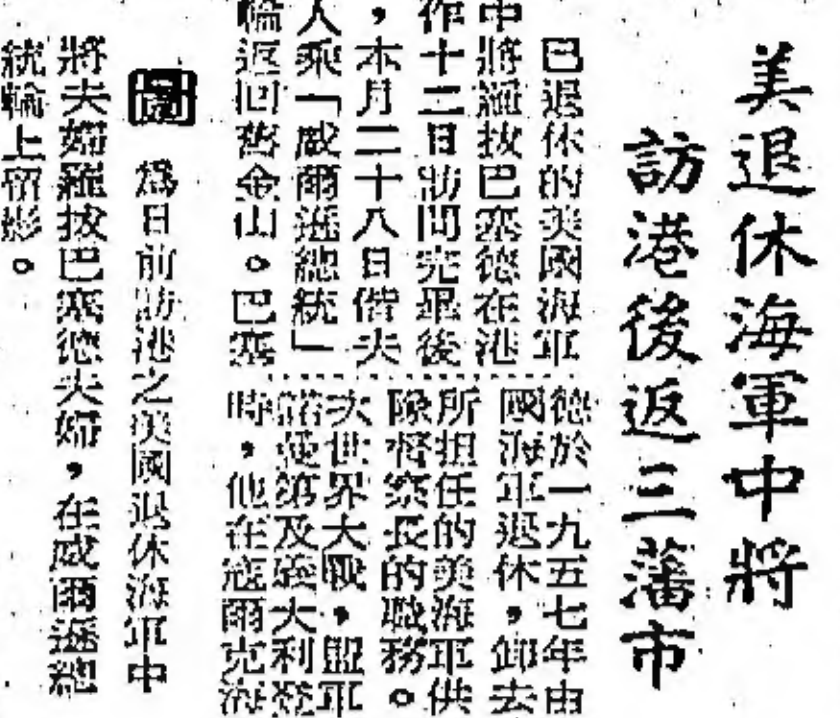 美退休海軍中將
訪港後返三藩市
已退休的美國海軍
中將羅拔巴塞德在港
作十二日訪問完畢後
，本月二十八日偕夫
人乘「威爾遜總統」
輪返回舊金山。巴塞
德於一九五七年由
國海軍退休，卸去
所担任的美海軍供
隊督察長的職務。
次世界大戰，盟軍
諾曼第及義大利登
時，他在寇爾克海
圖 為日前訪港之美國退休海軍中
將夫婦羅拔巴塞德夫婦，在威爾遜總
統輪上留影。